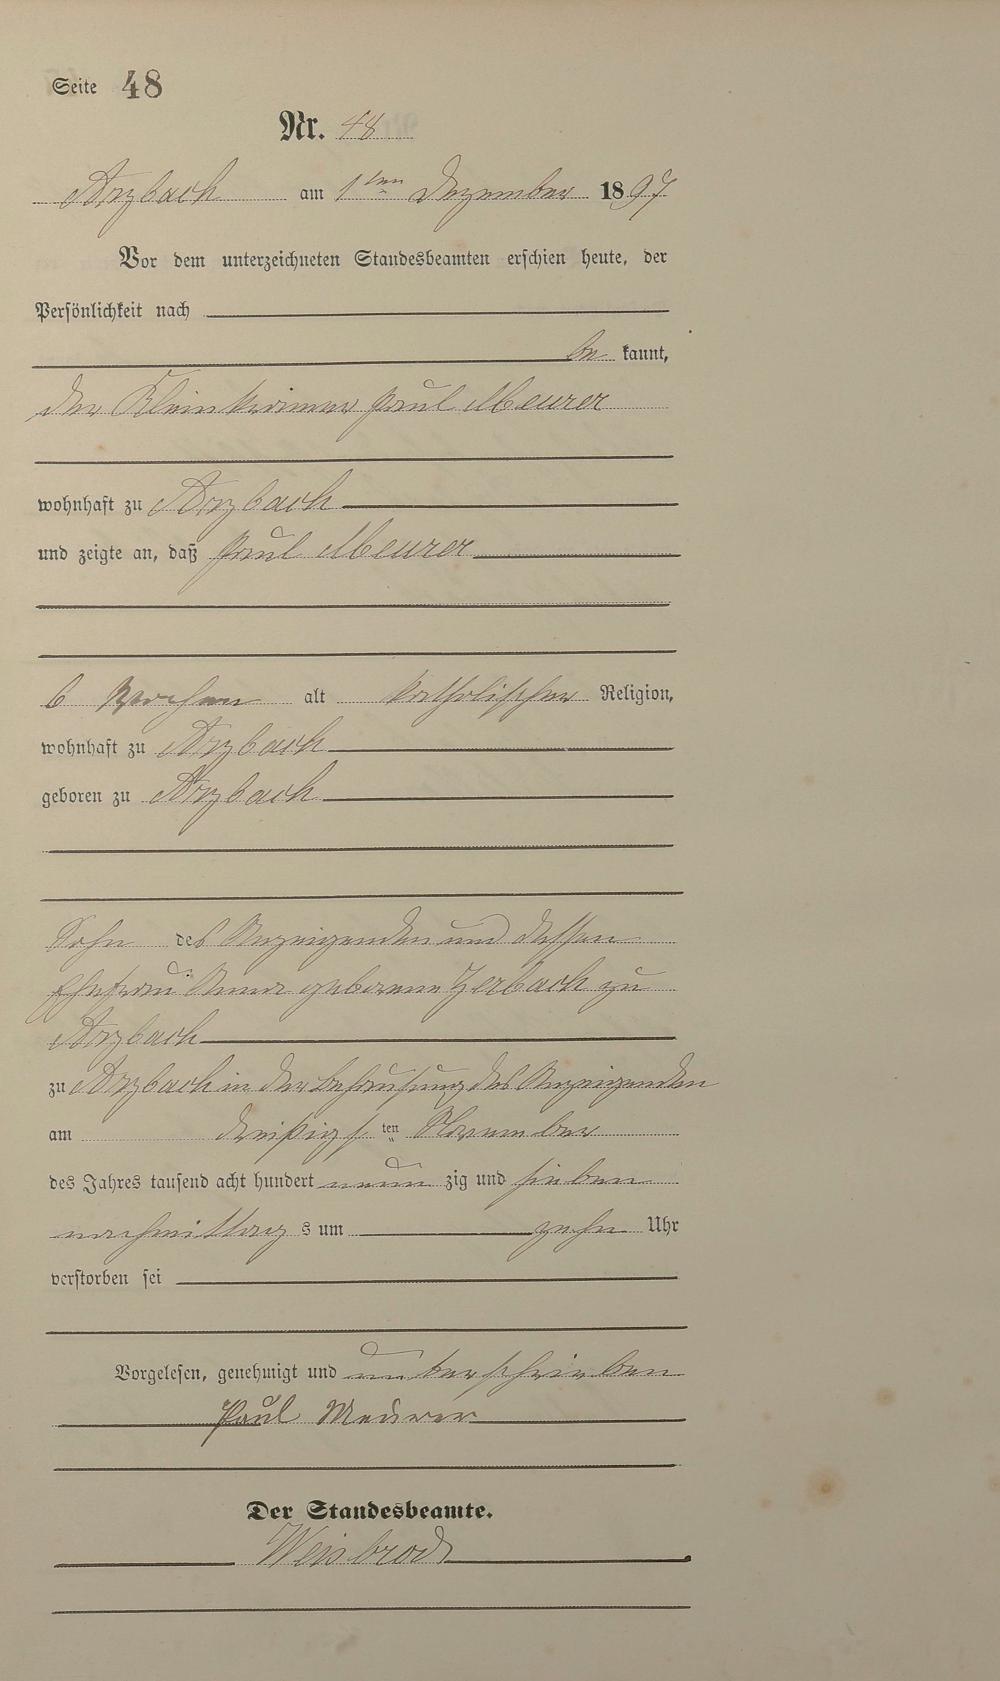 Seite 48
Nr. 48
Arzbach am 1ten Dezember 1897
Vor dem unterzeichneten Standesbeamten erschien heute, der
Persönlichkeit nach
be kannt,
der Kleinkrämer Paul Meurer
wohnhaft zu Arzbach
und zeigte an, daß Paul Meurer
6 Wochen alt katholischer Religion,
wohnhaft zu Arzbach
geboren zu Arzbach
Sohn des Anzeigenden und dessen
Ehefrau Anna geborene Zerbach zu
Arzbach
zu Arzbach in der Behausung des Anzeigenden
am dreißigsten November
des Jahres tausend acht hundert neun zig und sieben
nachmittags um zehn Uhr
verstorben sei
Vorgelesen, genehmigt und unterschrieben
Paul Meurer
Der Standesbeamte.
Weisbrod